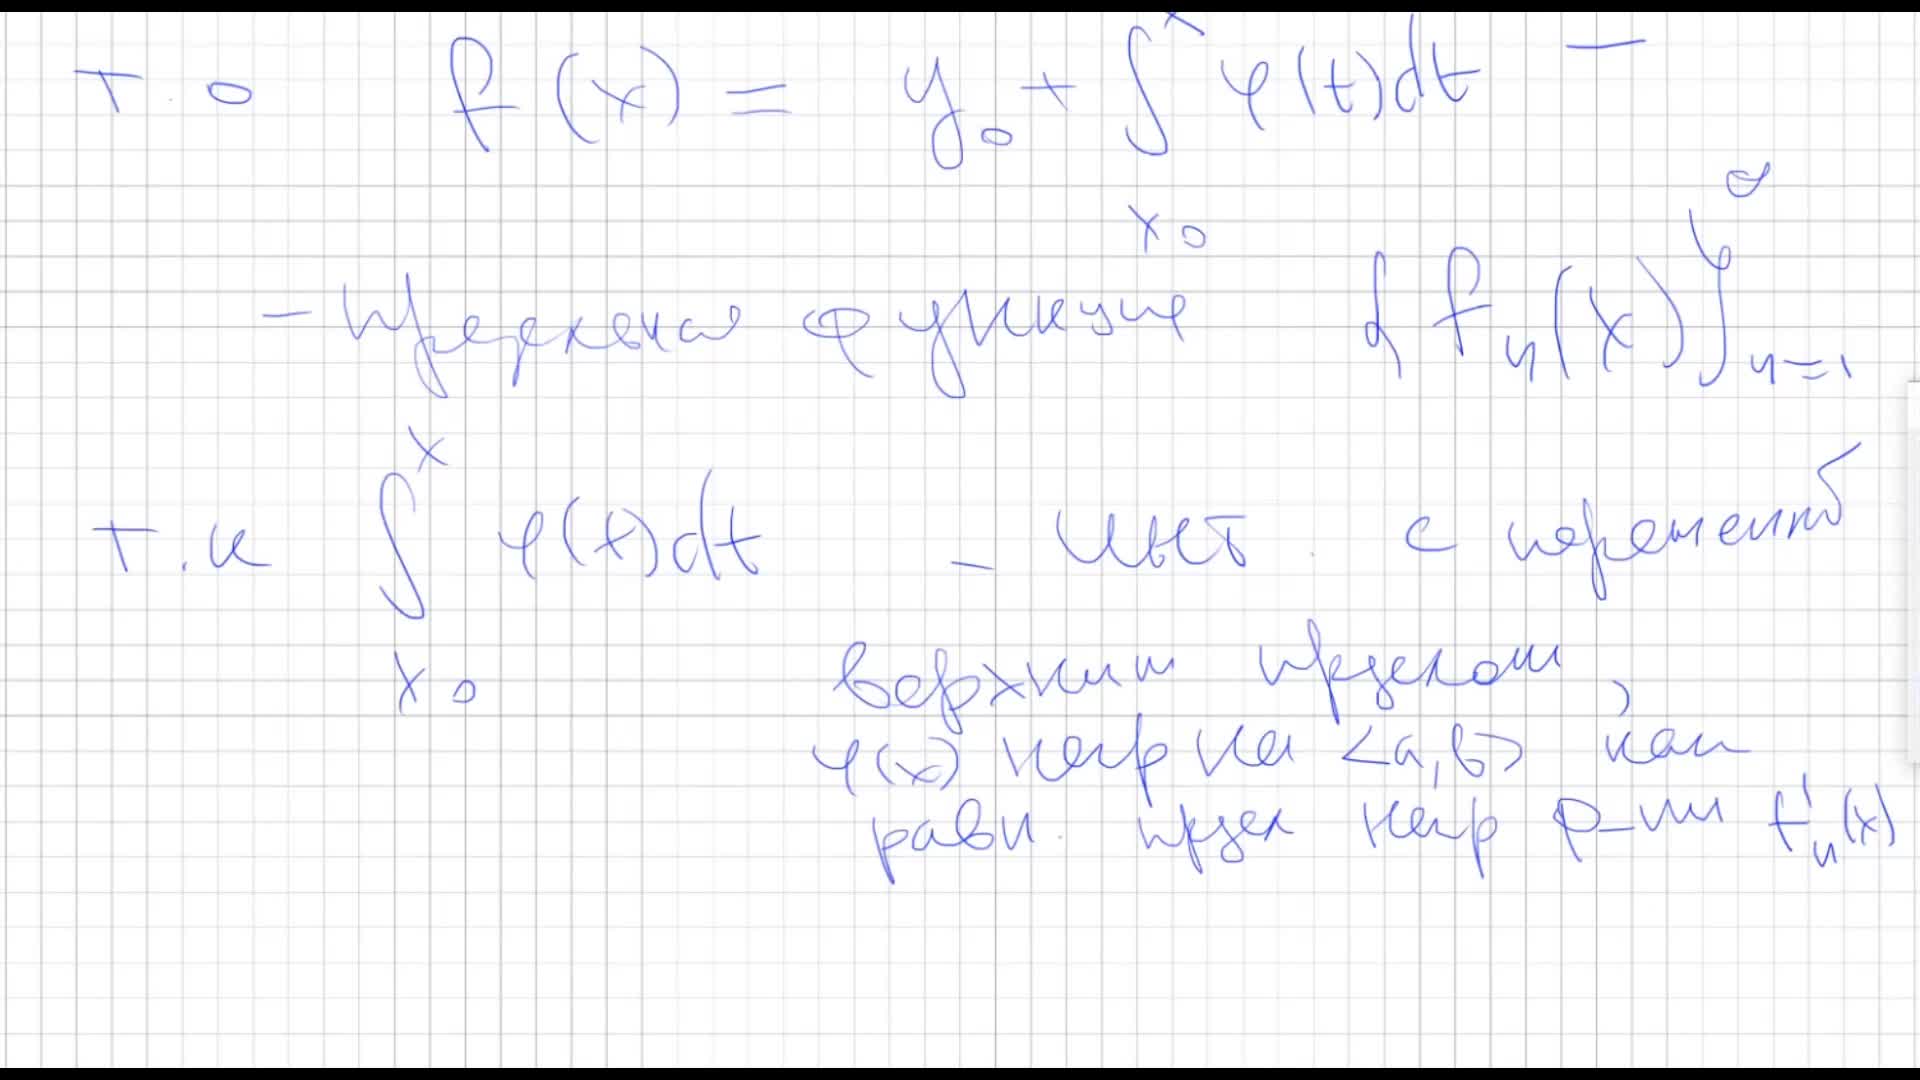 т.о f(x) = y₀ + ∫ₓ₀ˣ φ(t)dt –
– предельная функция {fₙ(x)}ₙ₌₁^∞
т.к ∫ₓ₀ˣ φ(t)dt – инт. с переменной
верхним пределом,
φ(x) непр на <a,b> как
равн. предел непр ф–ии f'ₙ(x)